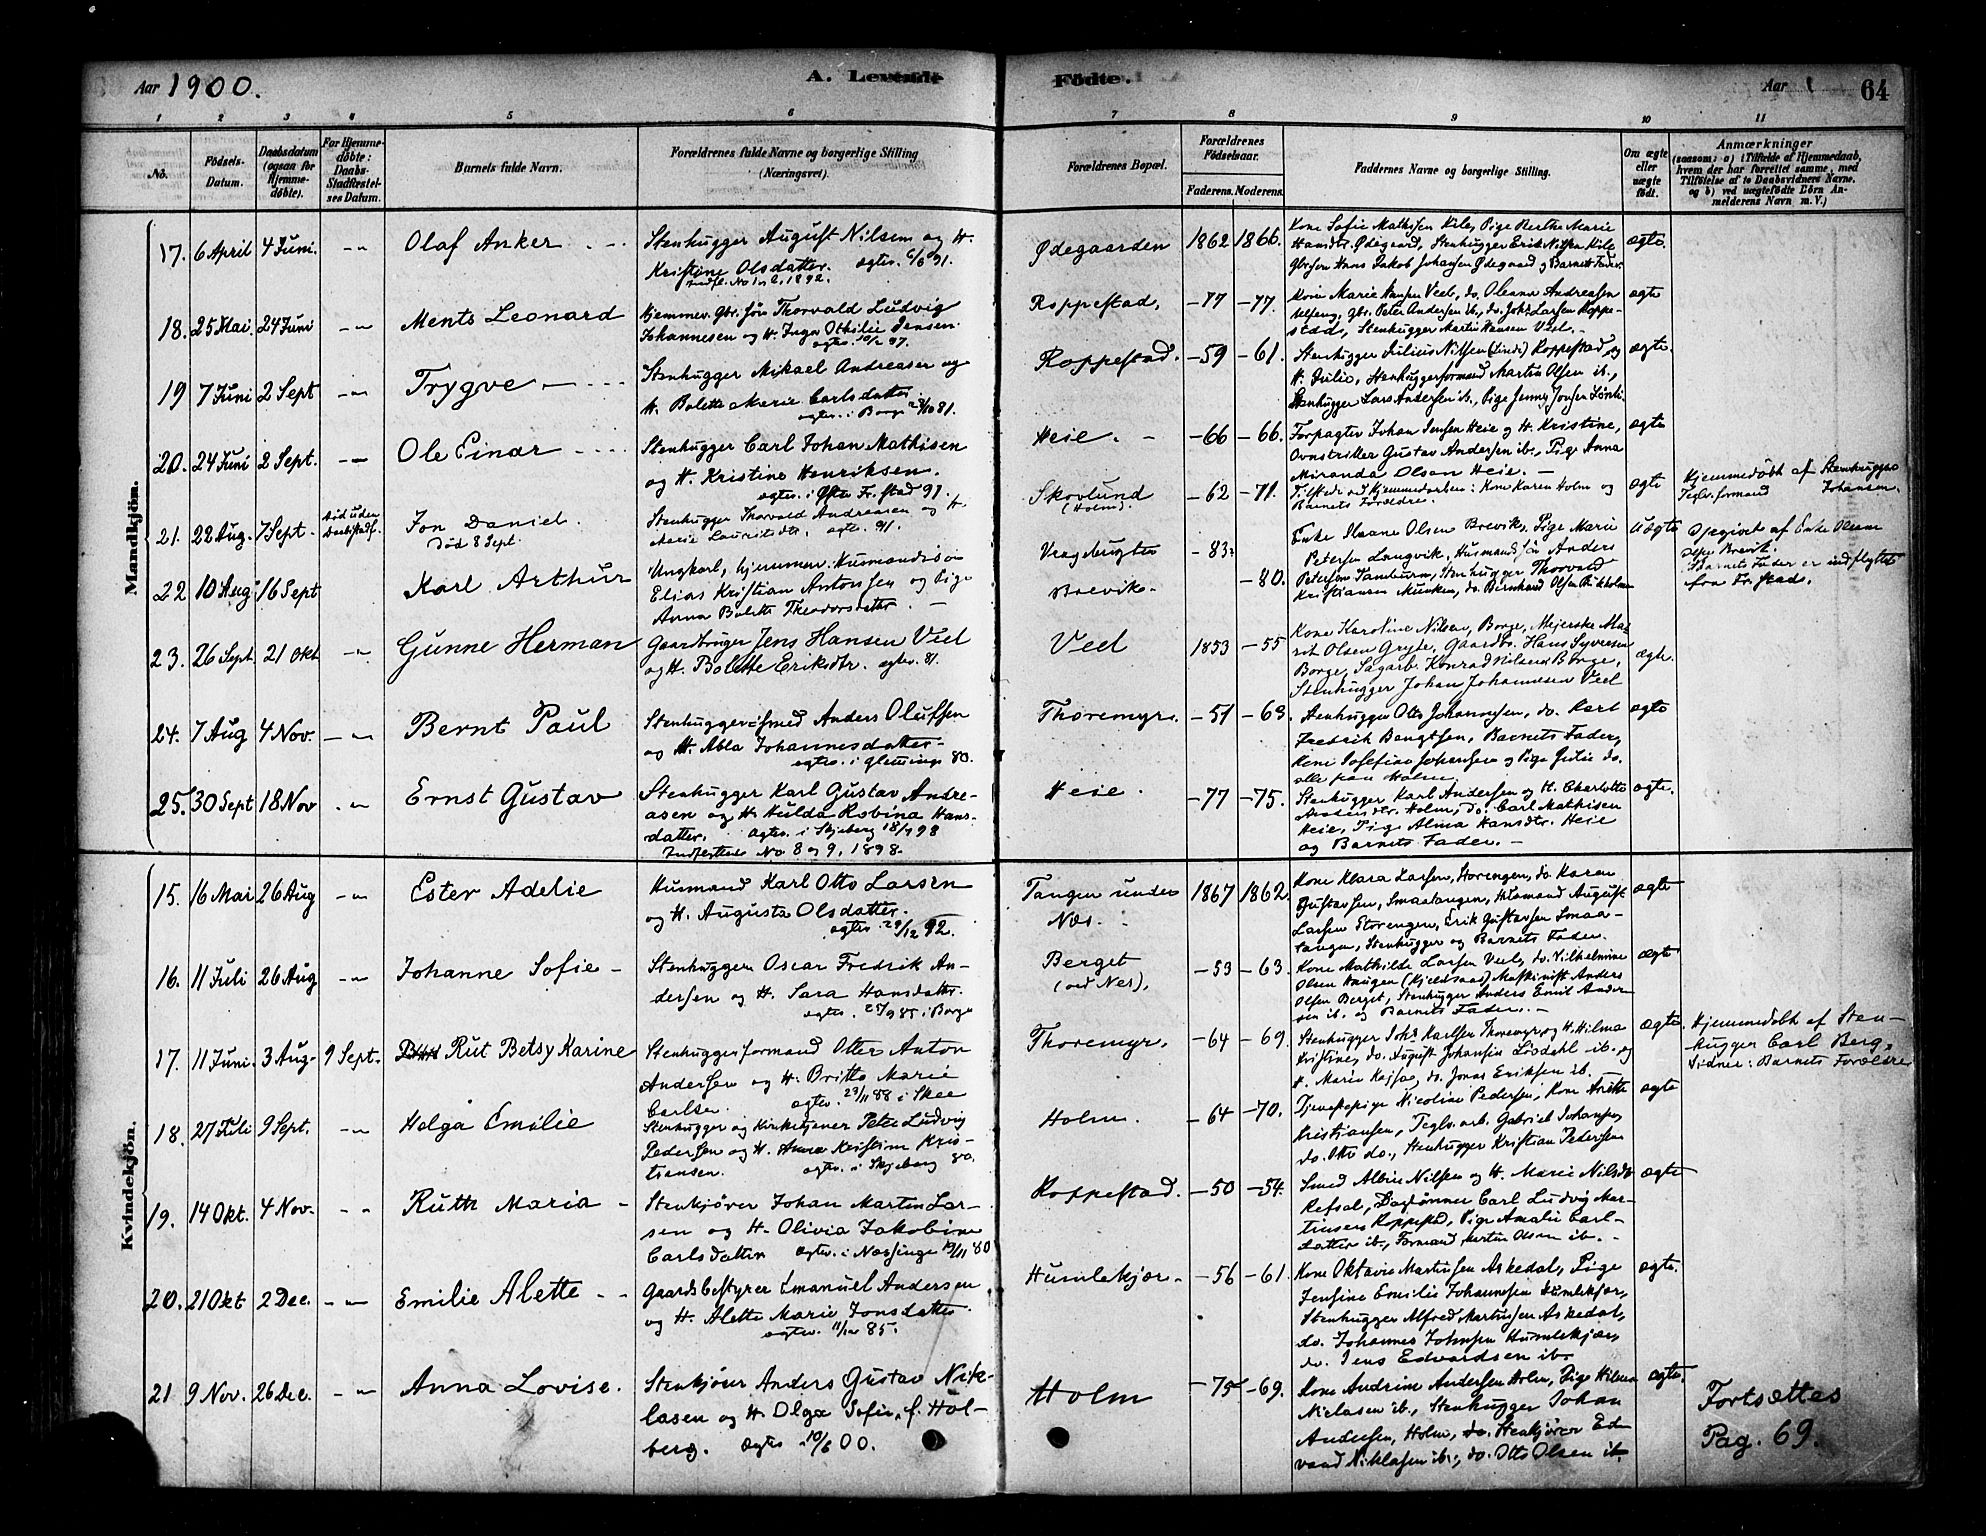 Aar 1900.
A. Levende
Fødte.
Aar
64
1 2 3 4 5 6 7 8 9 10 11
No.
Fødsels-Datum.
Daabsdatum (ogsaa for Hjemmedøbte).
For Hjemmedøbte: Daabs-Stadfæstelses Datum.
Barnets fulde Navn.
Forældrenes fulde Navne og borgerlige Stilling (Næringsvei).
Forældrenes Bopæl.
Forældrenes Fødselsaar.
Faderens. Moderens.
Faddernes Navne og borgerlige Stilling.
Om ægte eller uægte født.
Anmærkninger
(saasom: a) i Tilfælde af Hjemmedaab, hvem der har forrettet samme, med Tilføielse af to Daabsvidners Navne, og b) ved uægtefødte Børn Anmelderens Navn m. V.)
Mandkjøn.
17. 6 April 4 Juni. -"- Olaf Anker
Stenhugger August Nilsen og H.
Kristine Olsdatter. ægtev. 6/6 91.
Indfl. No 1 og 2, 1892.
Ødegaarden 1862 1866.
Kone Sofie Mathisen Kile, Pige Berthe Marie
Hansdtr. Ødegaard, Stenhugger Erik Nilsen Kile
Gbrsøn Hans Jakob Johansen Ødegaard og Barnets Fader.
ægte.
18. 25 Mai 24 Juni -"- Ments Leonard
Hjemmev. Gbr. søn Thorvald Ludvig
Johannesen og H. Inga Othilie Jensen.
ægtev. 10/2 97.
Roppestad, -77 -77.
Kone Marie Hansen Veel, do. Oleana Andreasen
Gbr. Peter Andersen ib., do. Johs Larsen Roppestad, Stenhugger Martin Hansen Veel. -
ægte
19 7 Juni 2 Sept -"- Trygve
Stenhugger Mikael Andreasen og
H. Bolette Marie Carlsdatter.
ægtev. i Borge 81.
Roppestad. -59 -61.
Stenhugger Julius Nilsen (Lindi) Roppestad og
H. Julie, Stenhuggerformand Martin Olsen ib.,
Stenhugger Lars Andersen ib., Pige Jenny Jonsen
ægte.
20. 24 Juni 2 Sept. -"- Ole Einar
Stenhugger Carl Johan Mathisen
og H. Kristine Henriksen.
ægtev. i Østre Fr.stad 97.
Heie. -66 -66.
Forpagter Johan Jensen Heie og H. Kristine,
Gustav Andersen ib., Pige Anna
Miranda Olsen Heie. -
ægte
21. 22 Aug. 7 Sept. død uden Daabstadf. Jon Daniel.
Død 8 Sept.
Stenhugger Thorvald Andreasen og H.
Marie Lauritsdtr. ægtev. 91.
Skovlund
(Holm). -62 -71.
Tilstede ved Hjemmedaaben: Kone Karen Holm og
Barnets Forældre.
ægte
Hjemmedøbt af Stenhugger
Teglv.formand Johansen.
22 10 Aug 16 Sept Karl Arthur
Ungkarl, hjemmev. Husmandssøn
Elias Kristian Antonsen og Pige
Anna Bolette Theodorsdatter. -
Vragbugten -83.
Brevik. -80.
Enke Hanne Olsen Brevik, Pige Marie
Petersen Langvik, Husmandssøn Anders
Petersen Tamburm, Stenhugger Thorvald
Kristiansen Munken, do. Bernhard Olsen
Uægte
Opgivet af Enke Olsen
Brevik.
Barnets Fader er indflyttet
fra Fr.stad.
23. 26 Sept. 21 Okt -"- Gunne Herman
Gaardbruger Jens Hansen Veel
og H. Bolette Eriksdtr. ægtev. 81.
Veel 1853 -55
Kone Karoline Nilsen, Borge, Meierske Marit Olsen Gryte, Gaardbr. Hans Syversen
Borge, Sagarb. Konrad Nilsen Borge,
Stenhugger Johan Johannesen Veel
ægte.
24. 7 Aug 4 Nov. -"- Bernt Paul
Stenhugger-smed Anders Olufsen
og H. Abla Johannesdatter-
ægtev. i Glemminge 80.
Thoremyr. -51 -63.
Stenhugger Otto Johannesen, do. Karl
Fredrik Bengtsen, Barnets Fader,
Kone Josefine Johansen og Pige Julie do.
alle paa Holm.
ægte
25. 30 Sept 18 Nov -"- Ernst Gustav
Stenhugger Karl Gustav Andreasen og H. Hulda Robina Hansdatter. ægtev. i Skjeberg 18/9 98
Indførtes No 8 og 9, 1898.
Heie. -77 -75.
Stenhugger Karl Andersen og H. Charlotte
Holm, do. Carl Mathisen
Heie, Pige Alma Hansdtr. Heie
og Barnets Fader. -
ægte.
Kvindekjøn.
15. 16 Mai 26 Aug -"- Ester Adelie
Husmand Karl Otto Larsen
og H. Augusta Olsdatter.
ægtev. 29/12 92.
Tangen under
Næs. 1867 1862.
Kone Klara Larsen, Storengen, do. Karen
Gustavsen, Smaatangen, Husmand August
Larsen Storengen, Erik Gustavsen Smaatangen, Stenhugger og Barnets Fader.
ægte
16. 11 Juli 26 Aug -"- Johanne Sofie -
Stenhugger Oscar Fredrik Andersen og H. Sara Hansdatter.
ægtev. 27/9 85 i Borge
Berget
(ved Nes), -53 -63.
Kone Mathilde Larsen Veel, do. Vilhelmine
Olsen Haugen (Kjeldsaas) Maskinist Anders
Olsen Berget, Stenhugger Anders Emil Andersen ib. og Barnets Fader. -
ægte
17. 11 Juni. 3 Aug- 9 Sept. Rut Betsy Karine
Stenhuggerformand Otter Anton
Andersen og H. Britta Marie
Carlsen. ægtev. 23/11 88 i Skee
Thoremyr. -64 -69.
Stenhugger Johs Karlsen Thoremyr og H. Hilma
Kristine, do. August Johansen Lisdahl ib. og
H. Marie Kajsa, do. Jonas Eriksen ib. -
ægte
Hjemmedøbt af Stenhugger Carl Berg,
Vidner: Barnets Forældre
18. 27 Juli 9 Sept. -"- Helga Emilie
Stenhugger og Kirketjener Peter Ludvig
Pedersen og H. Anna Kristine Kristiansen. ægtev. i Skjeberg 90.
Holm. -64 -70.
Tjenestepige Nicoline Pedersen, Kone Anette
Kristiansen, Teglv. arb. Gabriel Johansen,
do. Otto do., Stenhugger Kristian Pedersen
ægte
19. 14 Okt. 4 Nov. -"- Ruth Maria -
Stenkjører Johan Martin Larsen og H. Olivia Jakobine
Carlsdatter ægtev. i Næssinge 19/11 80
Roppestad. -50 -54.
Smed Albin Nilsen og H. Marie Nilsdtr.
Refsal, Daglønner Carl Ludvig Martinsen Roppestad, Pige Amalie Carlsdatter ib., Formand Martin Olsen ib. -
ægte
20. 21 Okt 2 Dec. -"- Emilie Alette -
Gaardsbestyrer Emanuel Andersen
og H. Alette Marie Jonsdatter.
ægtev. 11/12 85.
Humlekjær. -56 -61.
Kone Oktavie Martinsen Askedal, Pige
Jensine Emilie Johannesen Humlekjær,
Stenhugger Alfred Martinsen Askedal,
do. Johannes Johnsen Humlekjær,
do. Jens Edvardsen ib.
ægte.
21 9 Nov. 26 Dec. -"- Anna Lovise.
Stenkjører Anders Gustav Niklasen og H. Olga Sofie, f. Holberg. ægtev. 10/6 00.
Holm -75 -69.
Kone Andrine Andersen Holm, Pige Hilma
Niclasen ib., Stenhugger Johan
Andersen, Holm, do. Stenkjører Edvard Niklasen ib., do. Otto Olsen ib.
ægte.
Fortsættes
Pag. 69.